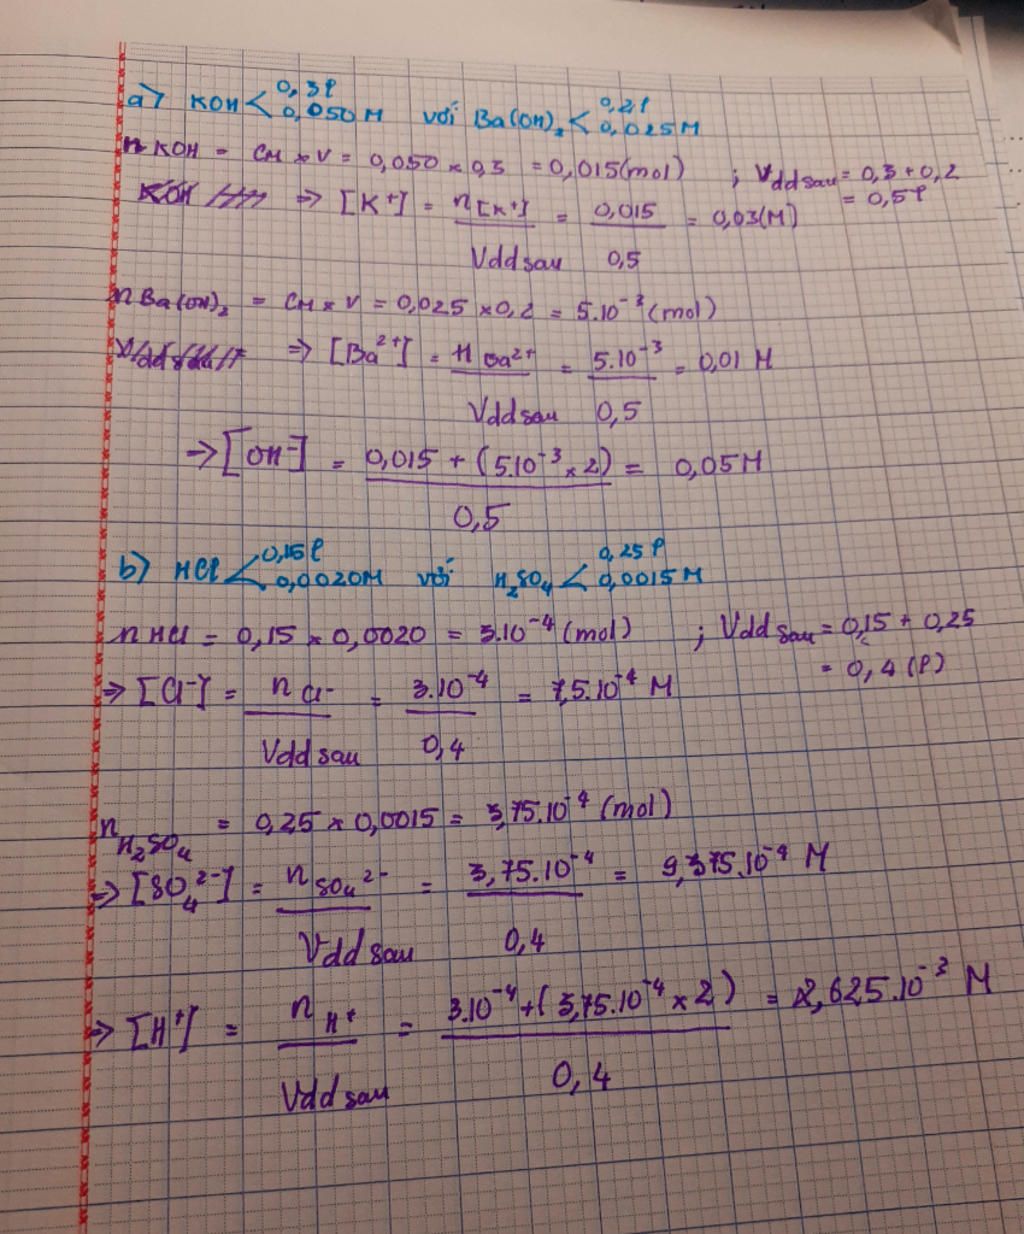 a) KOH < 0,3l 0,050M với Ba(OH)₂ < 0,2l 0,025M
nKOH = CM × V = 0,050 × 0,3 = 0,015(mol) ; Vdd sau = 0,3 + 0,2
= 0,5l
⇒ [K⁺] = n[K⁺] / Vdd sau = 0,015 / 0,5 = 0,03(M)
nBa(OH)₂ = CM × V = 0,025 × 0,2 = 5.10⁻³ (mol)
⇒ [Ba²⁺] = nBa²⁺ / Vdd sau = 5.10⁻³ / 0,5 = 0,01 M
⇒ [OH⁻] = 0,015 + (5.10⁻³ × 2) / 0,5 = 0,05M
b) HCl < 0,15l 0,0020M với H₂SO₄ < 0,25l 0,0015M
nHCl = 0,15 × 0,0020 = 3.10⁻⁴ (mol) ; Vdd sau = 0,15 + 0,25
= 0,4 (l)
⇒ [Cl⁻] = nCl⁻ / Vdd sau = 3.10⁻⁴ / 0,4 = 7,5.10⁻⁴ M
nH₂SO₄ = 0,25 × 0,0015 = 3,75.10⁻⁴ (mol)
⇒ [SO₄²⁻] = nSO₄²⁻ / Vdd sau = 3,75.10⁻⁴ / 0,4 = 9,375.10⁻⁴ M
⇒ [H⁺] = nH⁺ / Vdd sau = 3.10⁻⁴ + (3,75.10⁻⁴ × 2) / 0,4 = 2,625.10⁻³ M